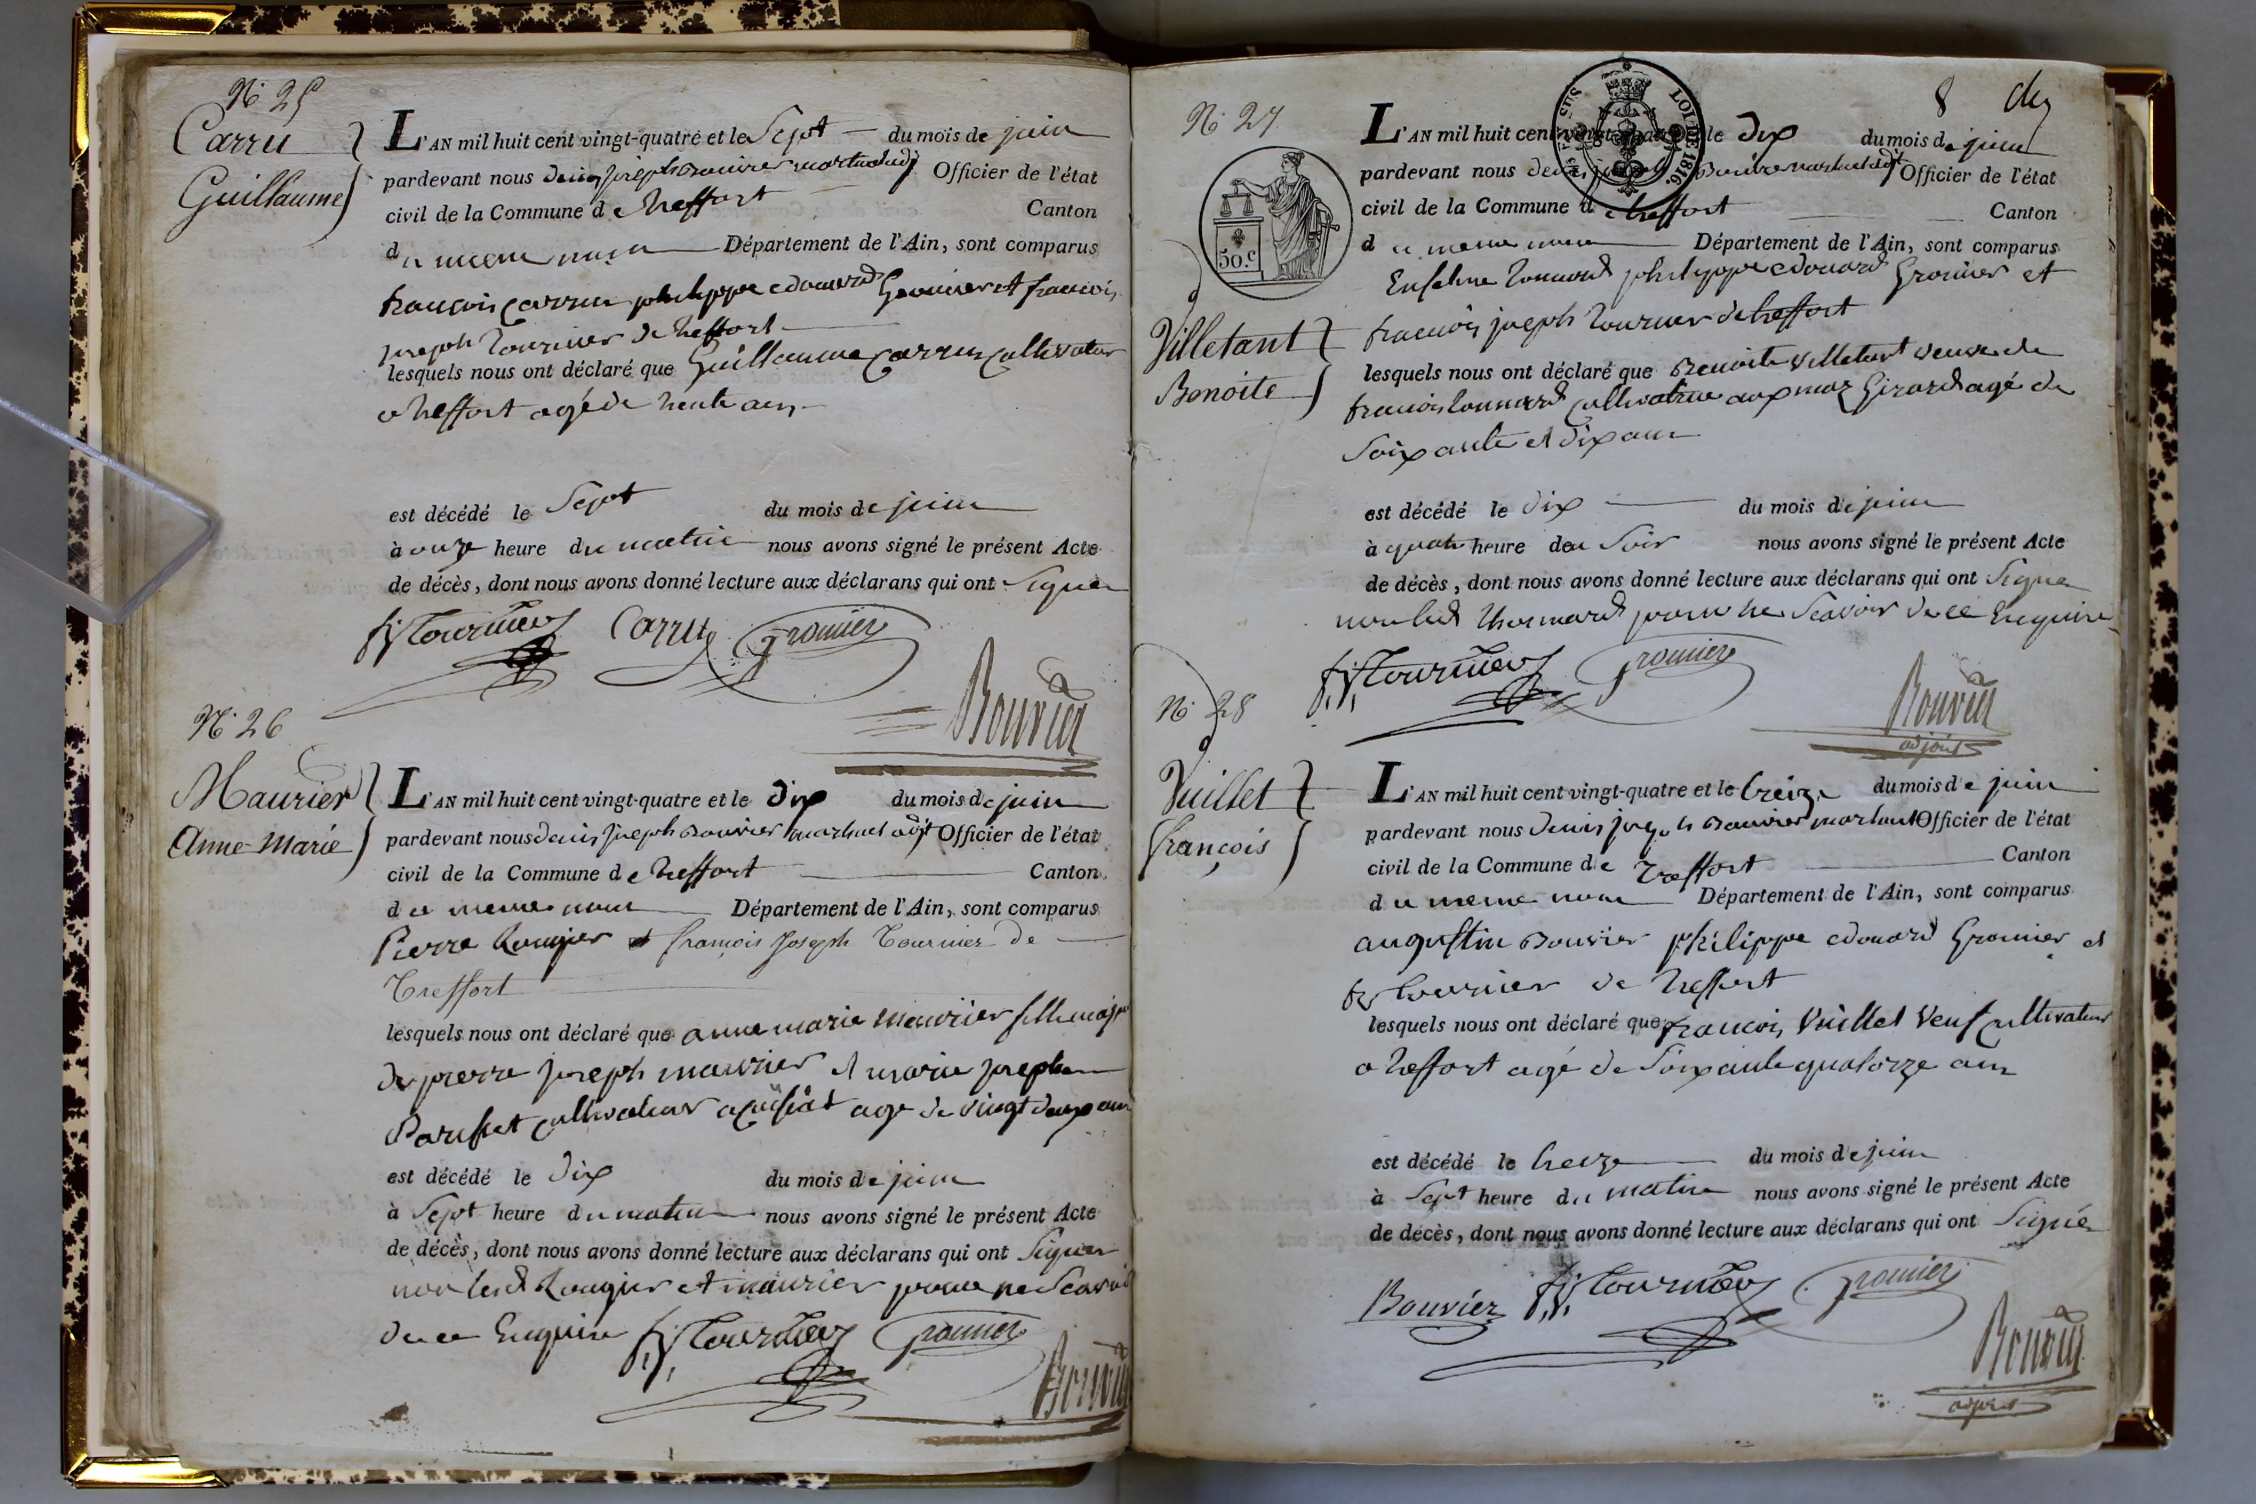 N° 25
Carru
Guillaume
L'AN mil huit cent vingt-quatre et le Sept du mois de juin
pardevant nous denis joseph Bouvier martinal adjt Officier de l'état
civil de la Commune de treffort Canton
du meme nom Département de l'Ain, sont comparus
francois Carru philippe edouard Gromier et francois
joseph tournier de treffort
lesquels nous ont déclaré que Guillaume Carru Cultivateur
a treffort agé de trente ans
est décédé le Sept du mois de juin
à onze heure du matin nous avons signé le présent Acte
de décès, dont nous avons donné lecture aux déclarans qui ont Signer
fj Tournier Carru Gromier
Bouvier
N° 26
Maurier
Anne-Marie
L'AN mil huit cent vingt-quatre et le dix du mois de juin
pardevant nous denis joseph Bouvier adjt Officier de l'état
civil de la Commune de treffort Canton
du meme nom Département de l'Ain, sont comparus
Pierre Rougier et françois Joseph Tournier de
Treffort
lesquels nous ont déclaré que anne marie maurier fille majr
de pierre joseph maurier et marie josephe
cultivateur a age de vingt deux ans
est décédé le dix du mois de juin
à Sept heure du matin nous avons signé le présent Acte
de décès, dont nous avons donné lecture aux déclarans qui ont Signer
non led Rougier et maurier pour ne Scavoir
de ce Enquire fj Tournier Gromier
Bouvier
8 dix
N° 27
SUS LOI DE 1816
50.c
Villetant
Benoite
L'AN mil huit cent vingt-quatre et le dix du mois de juin
pardevant nous denis joseph Bouvier adjt Officier de l'état
civil de la Commune de treffort Canton
du meme nom Département de l'Ain, sont comparus
philippe edouard Gromier et
francois joseph tournier de treffort
lesquels nous ont déclaré que Benoite Villetant veuve de
francois cultivatrice aux maz Girard agé de
Soixante et dix ans
est décédé le dix du mois de juin
à quatre heure du Soir nous avons signé le présent Acte
de décès, dont nous avons donné lecture aux déclarans qui ont Signe
non led pour ne Scavoir de ce Enquire
fj Tournier Gromier
Bouvier
adjoint
N° 28
Vuillet
françois
L'AN mil huit cent vingt-quatre et le treize du mois de juin
pardevant nous denis joseph Bouvier Officier de l'état
civil de la Commune de Treffort Canton
du meme nom Département de l'Ain, sont comparus
augustin Bouvier philippe edouard Gromier et
fj tournier de treffort
lesquels nous ont déclaré que francois Vuillet veuf cultivateur
a treffort agé de Soixante quatorze ans
est décédé le treize du mois de juin
à Sept heure du matin nous avons signé le présent Acte
de décès, dont nous avons donné lecture aux déclarans qui ont Signé
Bouvier fj Tournier Gromier
Bouvier
adjoint